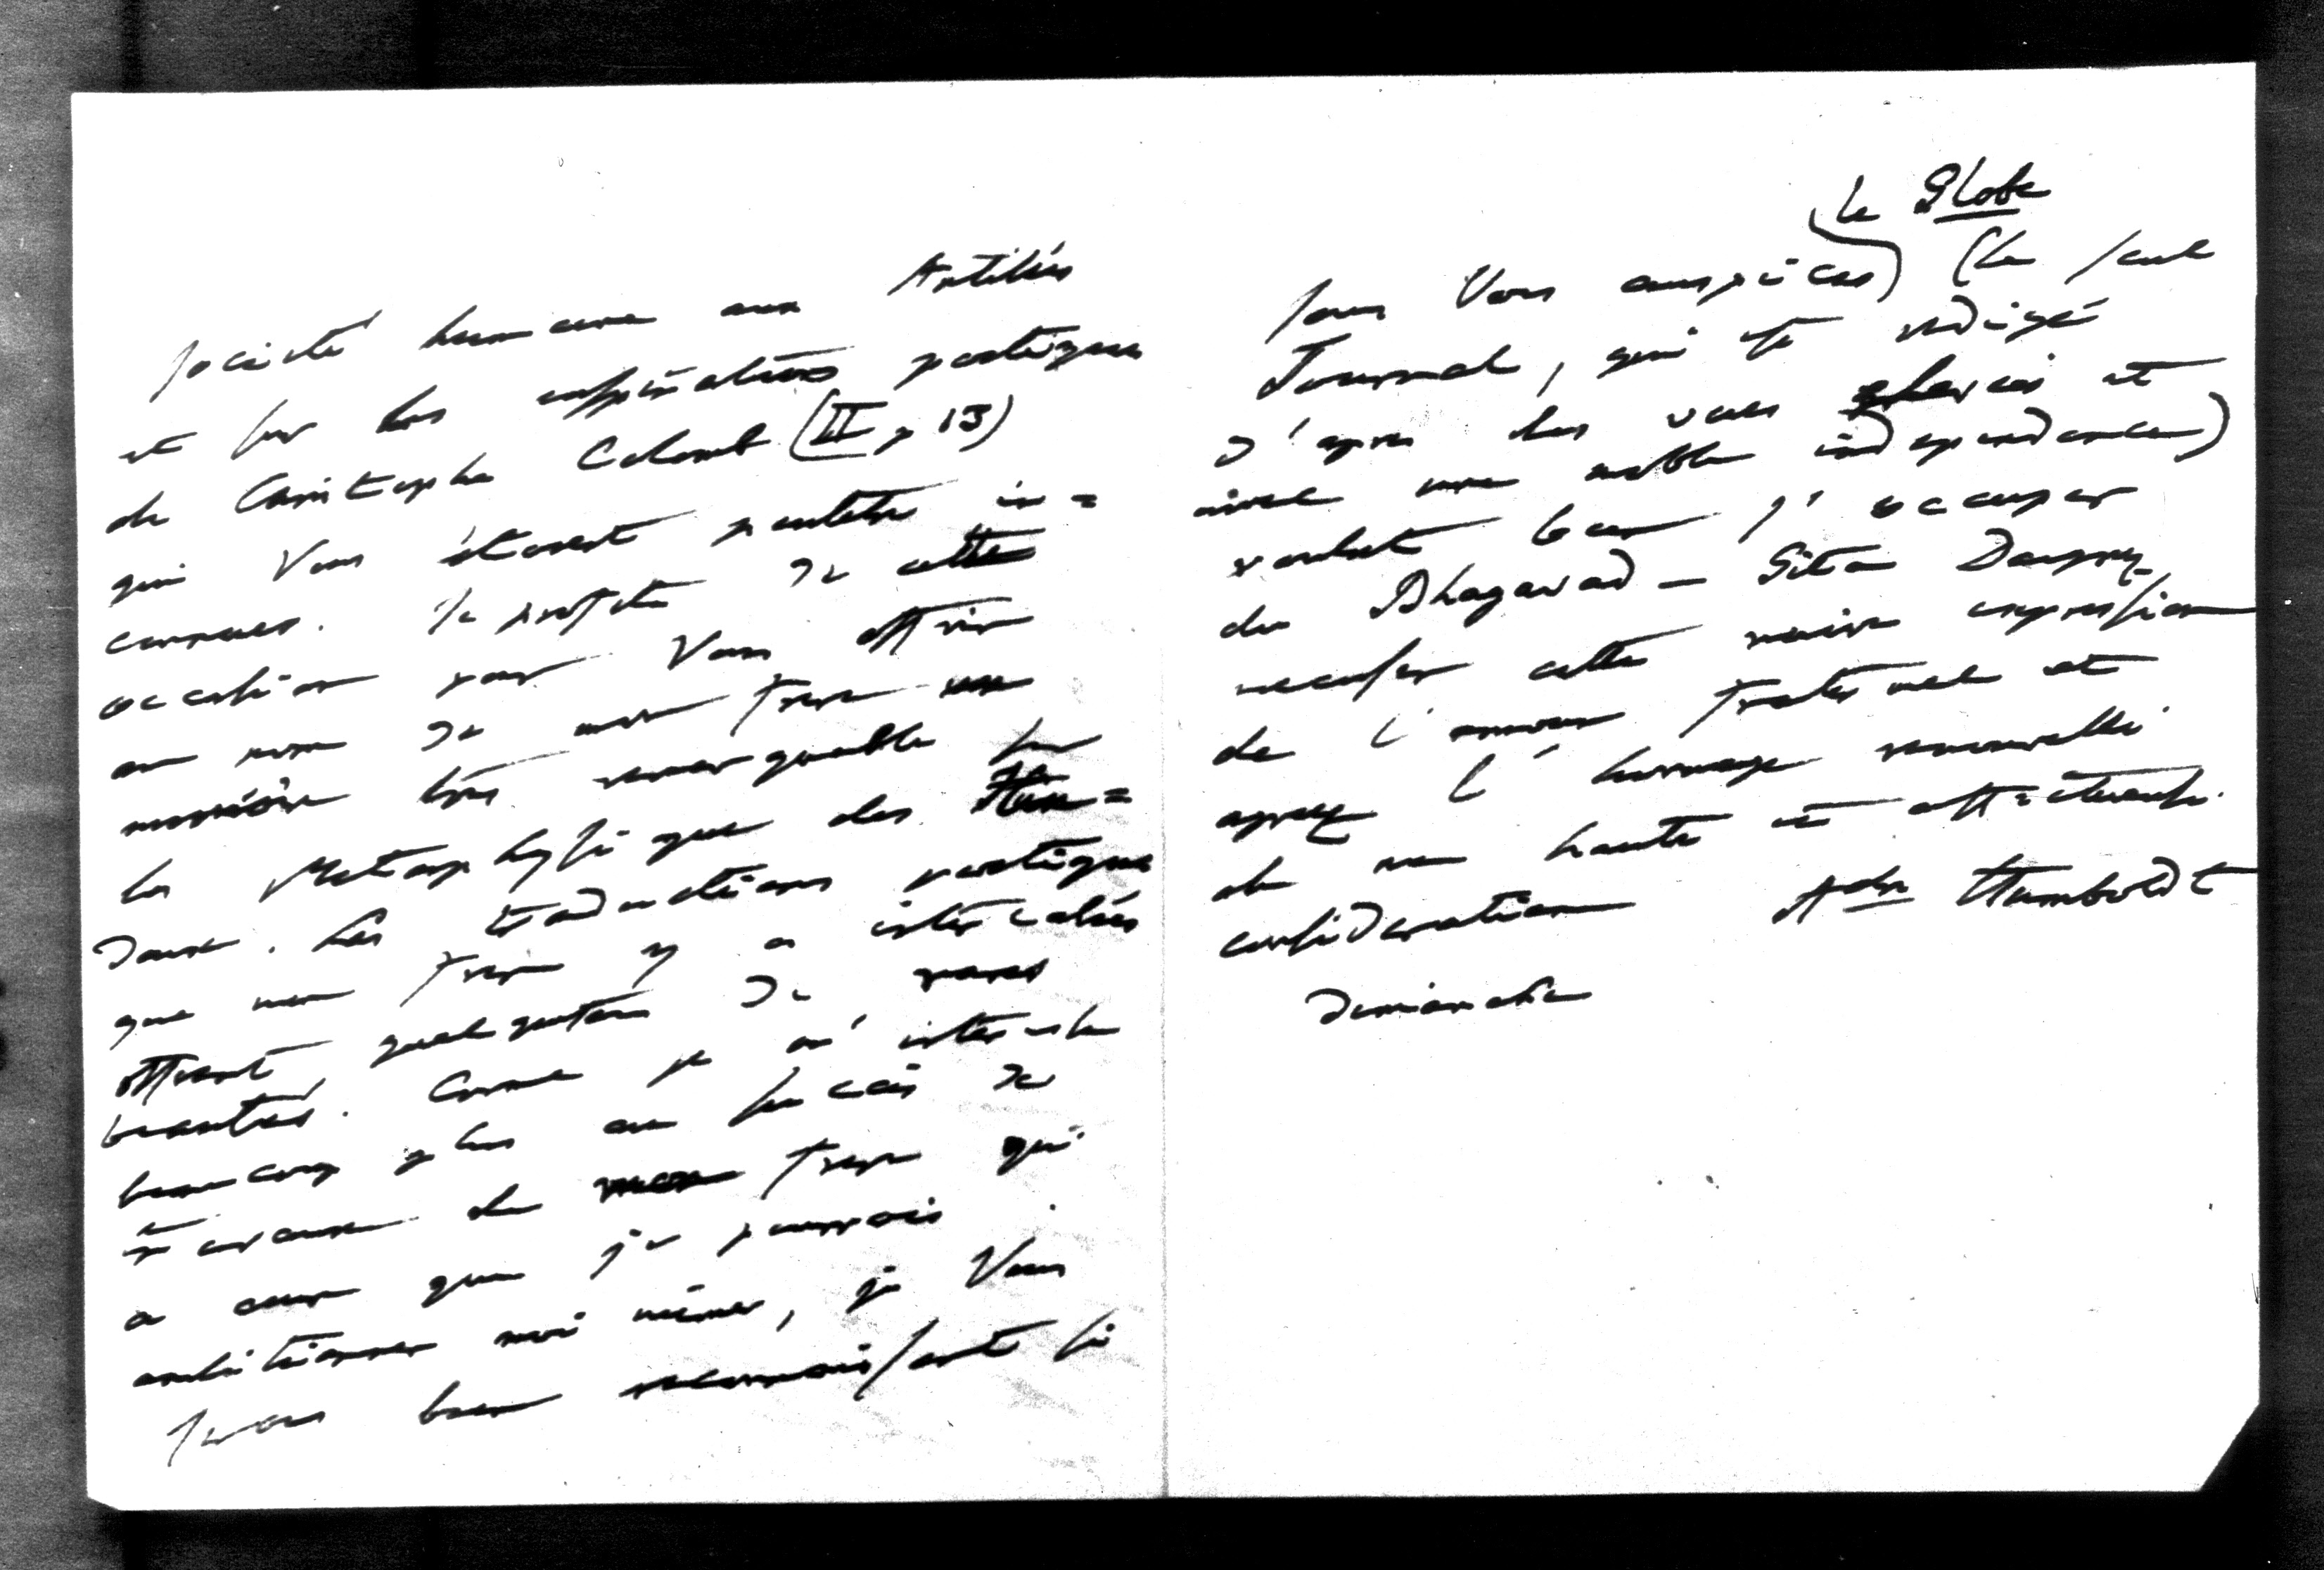 société humaine aux Antilles
et sur les inspirations poetiques
de Christophe Colomb (II p 13)
qui Vous étoient peutetre in=
connues. Je profite de cette
occasion pour Vous offrir
au nom de mon frere un
memoire très remarquable sur
la Metaphysique des Hin=
doux. Les traductions poetiques
que mon frere y a intercalées
offrent quelquefois de rares
beautés. Comme je m'interesse
beaucoup plus au succès de
travaux de mon frere qui
a ceux que je pourrois
ambitionner moi même, je Vous
serois bien reconnoissant si
sous Vos auspices) le Globe (le seul
Journal, qui est redigé
d'apres des vues elevées et
avec une noble independance)
voulut bien s'occuper
du Bhagavad-Gita Daignez
excuser cette naive expression
de l'amour fraternel et
agreez l'hommage renouvellé
de ma haute et affectueuse
consideration
Adr Humboldt
Dimanche